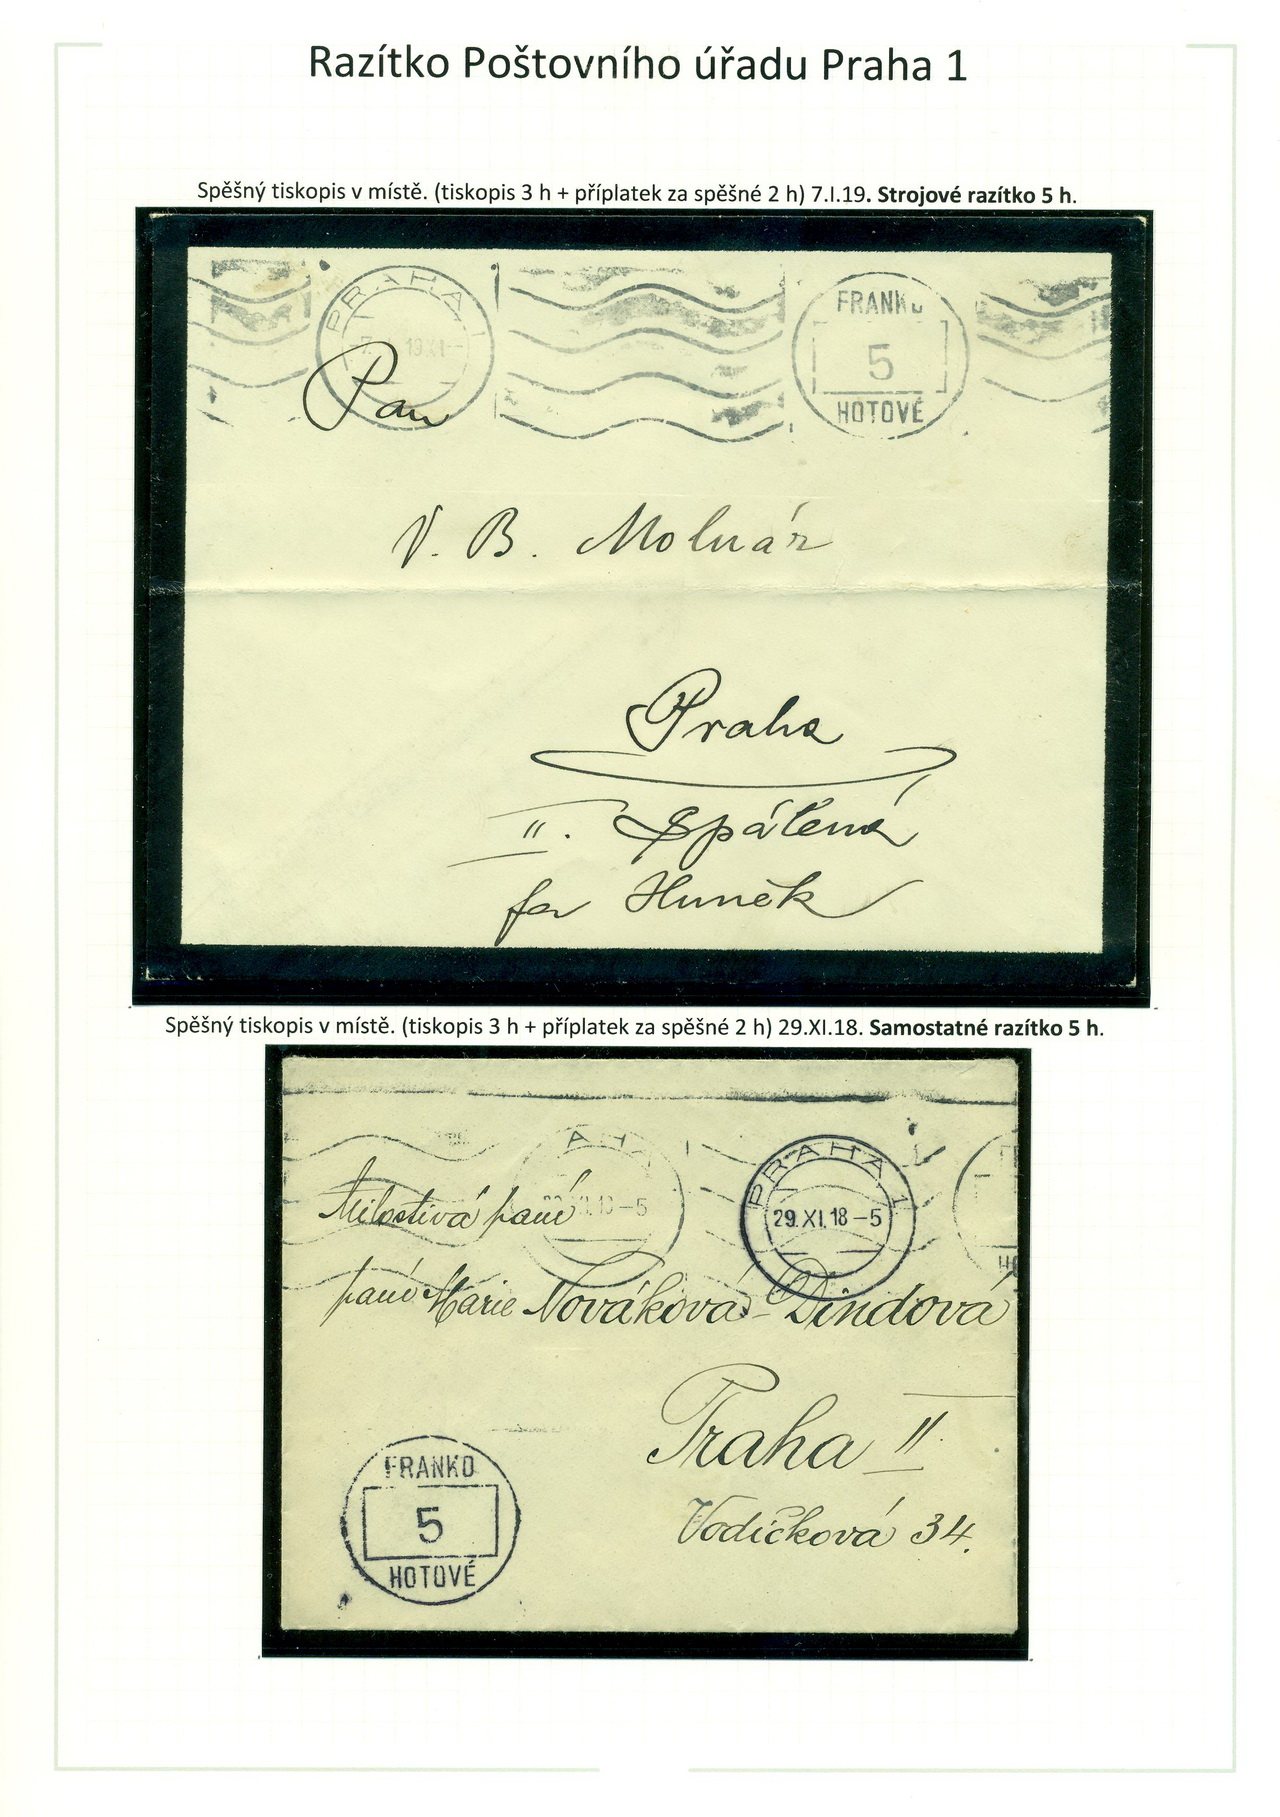 Razítko Poštovního úřadu Praha 1
Spěšný tiskopis v místě. (tiskopis 3 h + příplatek za spěšné 2 h) 7.I.19. Strojové razítko 5 h.
PRAHA 1
FRANKO
5
HOTOVÉ
Pan
V. B. Molnár
Praha
II. Spálená
fa Hunĕk
Spěšný tiskopis v místě. (tiskopis 3 h + příplatek za spěšné 2 h) 29.XI.18. Samostatné razítko 5 h.
AHA
PRAHA 1
29.XI.18-5
Milostivá paní
paní Marie Nováková-Dindová
Praha II.
Vodíčková 34.
FRANKO
5
HOTOVÉ